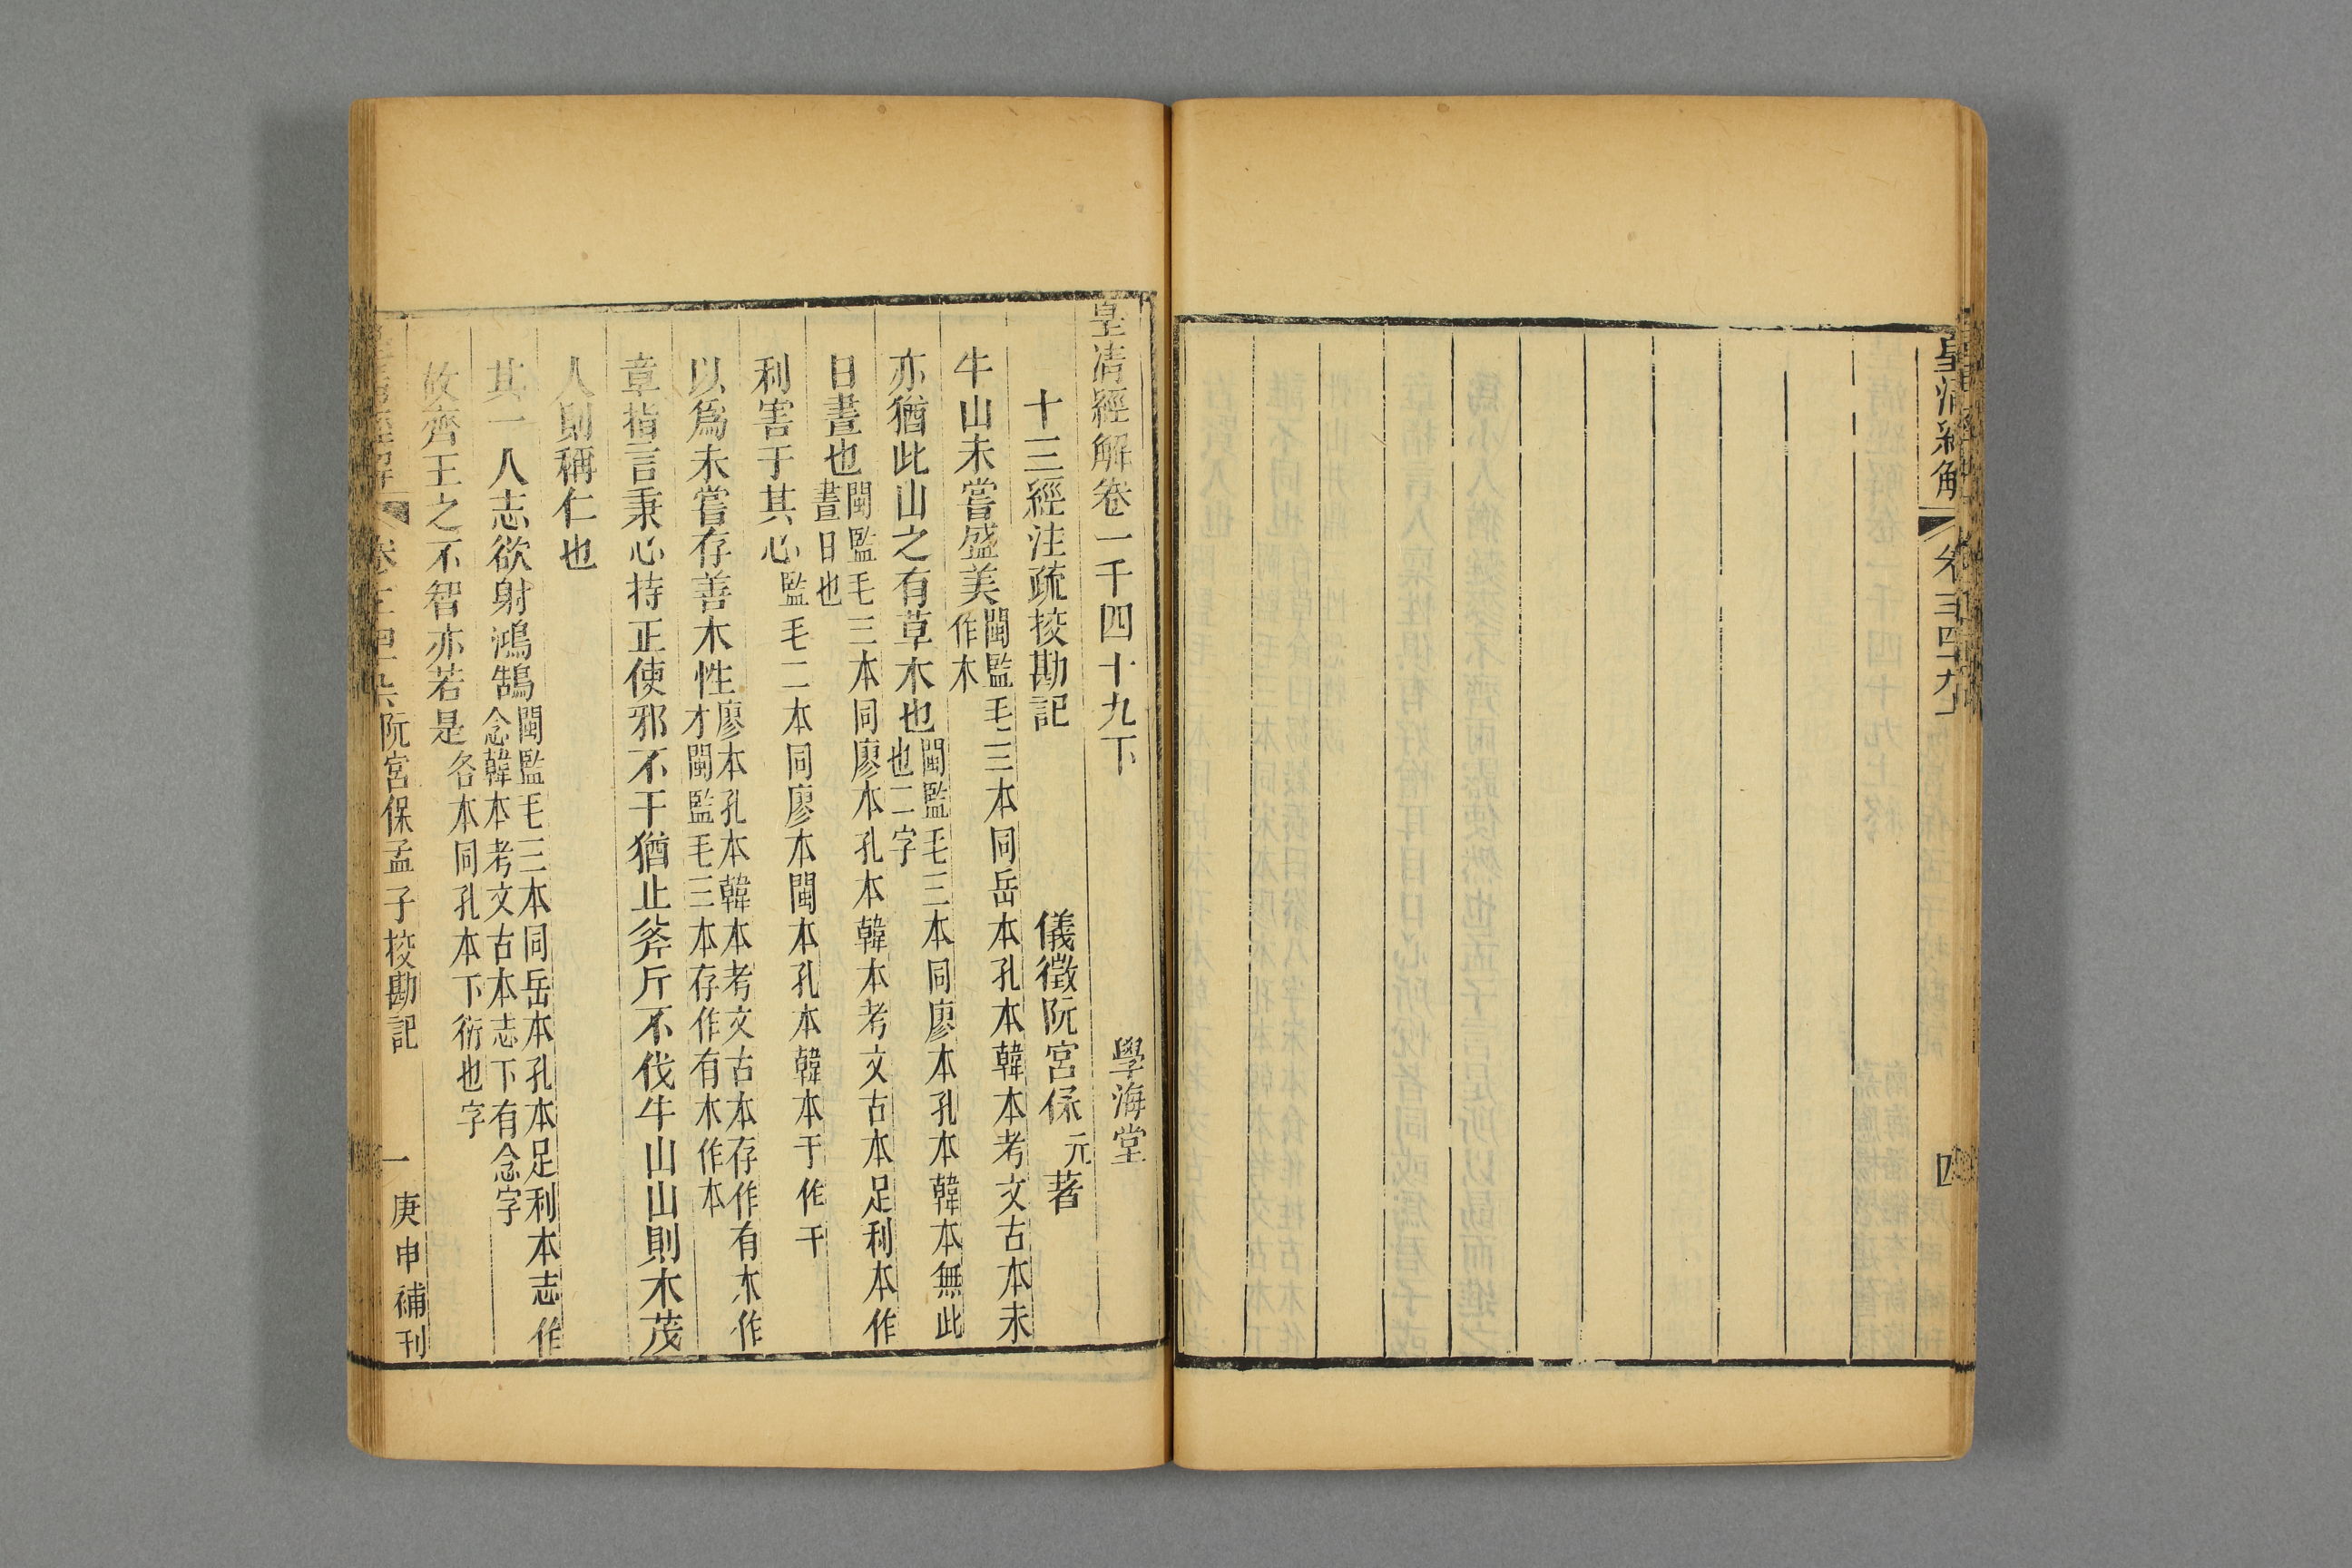 皇清經解
皇清經解卷一千四十九下
學海堂
十三經注疏挍勘記
儀徵阮宮保元著
牛山未嘗盛美閩監毛三本同岳本孔本韓本考文古本未
作木
亦猶此山之有草木也閩監毛三本同廖本孔本韓本無此
也二字
日晝也閩監毛三本同廖本孔本韓本考文古本足利本作
晝日也
利害于其心監毛二本同廖本閩本孔本韓本于作干
以爲未嘗存善木性廖本孔本韓本考文古本存作有木作
才閩監毛三本存作有木作本
章指言秉心持正使邪不干猶止斧斤不伐牛山山則木茂
人則稱仁也
其一人志欲射鴻鵠閩監毛三本同岳本孔本足利本志作
念韓本考文古本志下有念字
故齊王之不智亦若是各本同孔本下衍也字
阮宮保孟子校勘記
一
庚申補刊